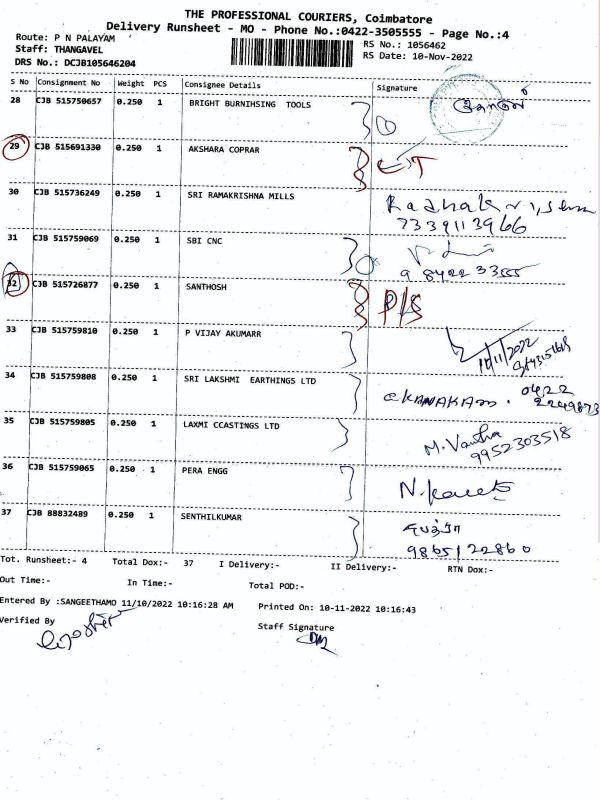 THE PROFESSIONAL COURIERS, Coimbatore
Delivery Runsheet - MO - Phone No.:0422-3505555 - Page No.:4
Route: P N PALAYAM
RS No.: 1056462
Staff: THANGAVEL
RS Date: 10-Nov-2022
DRS No.: DCJB105646204
S No Consignment No Weight PCS Consignee Details Signature
28 CJB 515750657 0.250 1 BRIGHT BURNIHSING TOOLS
29 CJB 515691330 0.250 1 AKSHARA COPRAR
30 CJB 515736249 0.250 1 SRI RAMAKRISHNA MILLS
7339113966
31 CJB 515759069 0.250 1 SBI CNC
9842233555
32 CJB 515726877 0.250 1 SANTHOSH P/S
33 CJB 515759810 0.250 1 P VIJAY AKUMARR
10/11/2022
34 CJB 515759808 0.250 1 SRI LAKSHMI EARTHINGS LTD
KANAKAM. 0422
2249873
35 CJB 515759805 0.250 1 LAXMI CCASTINGS LTD
9952303518
36 CJB 515759065 0.250 1 PERA ENGG
37 CJB 88832489 0.250 1 SENTHILKUMAR
9865122860
Tot. Runsheet:- 4 Total Dox:- 37 I Delivery:- II Delivery:- RTN Dox:-
Out Time:- In Time:- Total POD:-
Entered By :SANGEETHAMO 11/10/2022 10:16:28 AM Printed On: 10-11-2022 10:16:43
Verified By
Staff Signature